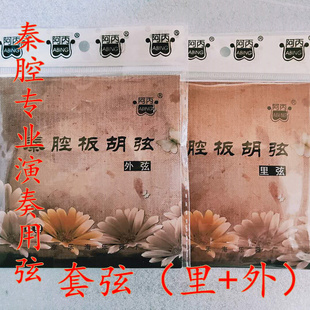 秦腔专业演奏用弦
阿丙
ABING
阿丙
ABING
阿丙
ABING
阿丙
ABING
秦腔板胡弦
外弦
阿丙
ABING
腔板胡弦
里弦
套弦（里+外）